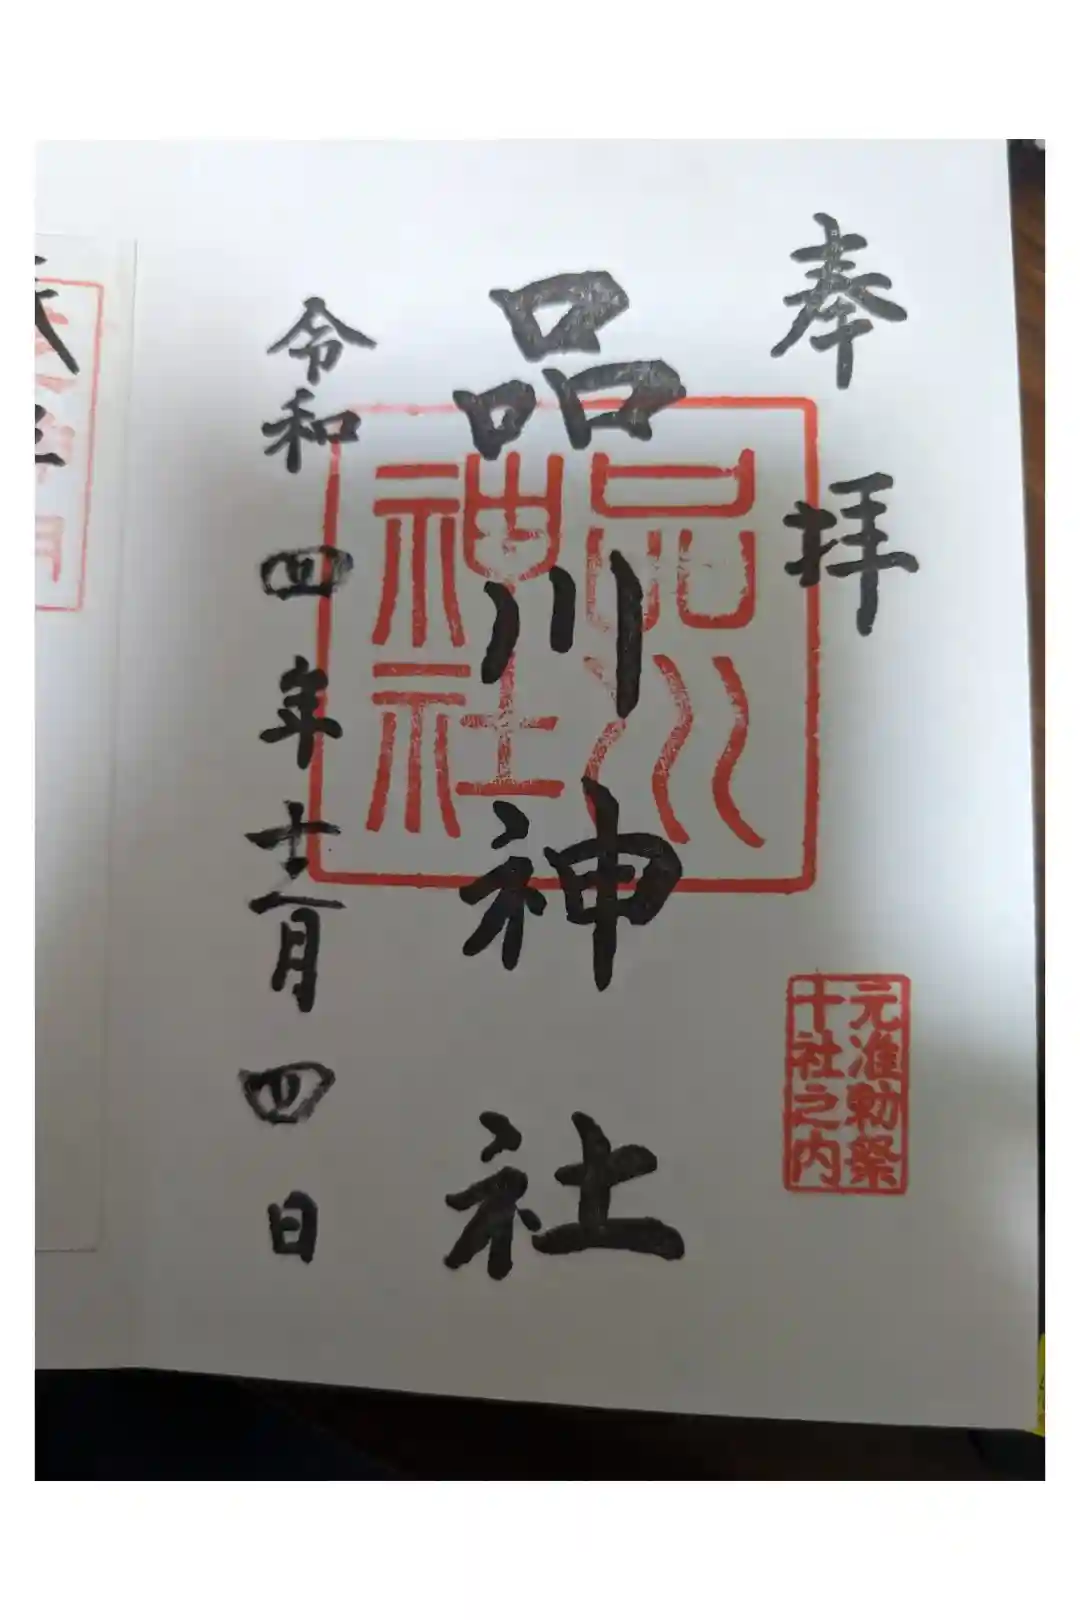 奉拝
元准勅祭
十社之内
品川神社
品川
神社
令和四年十二月四日